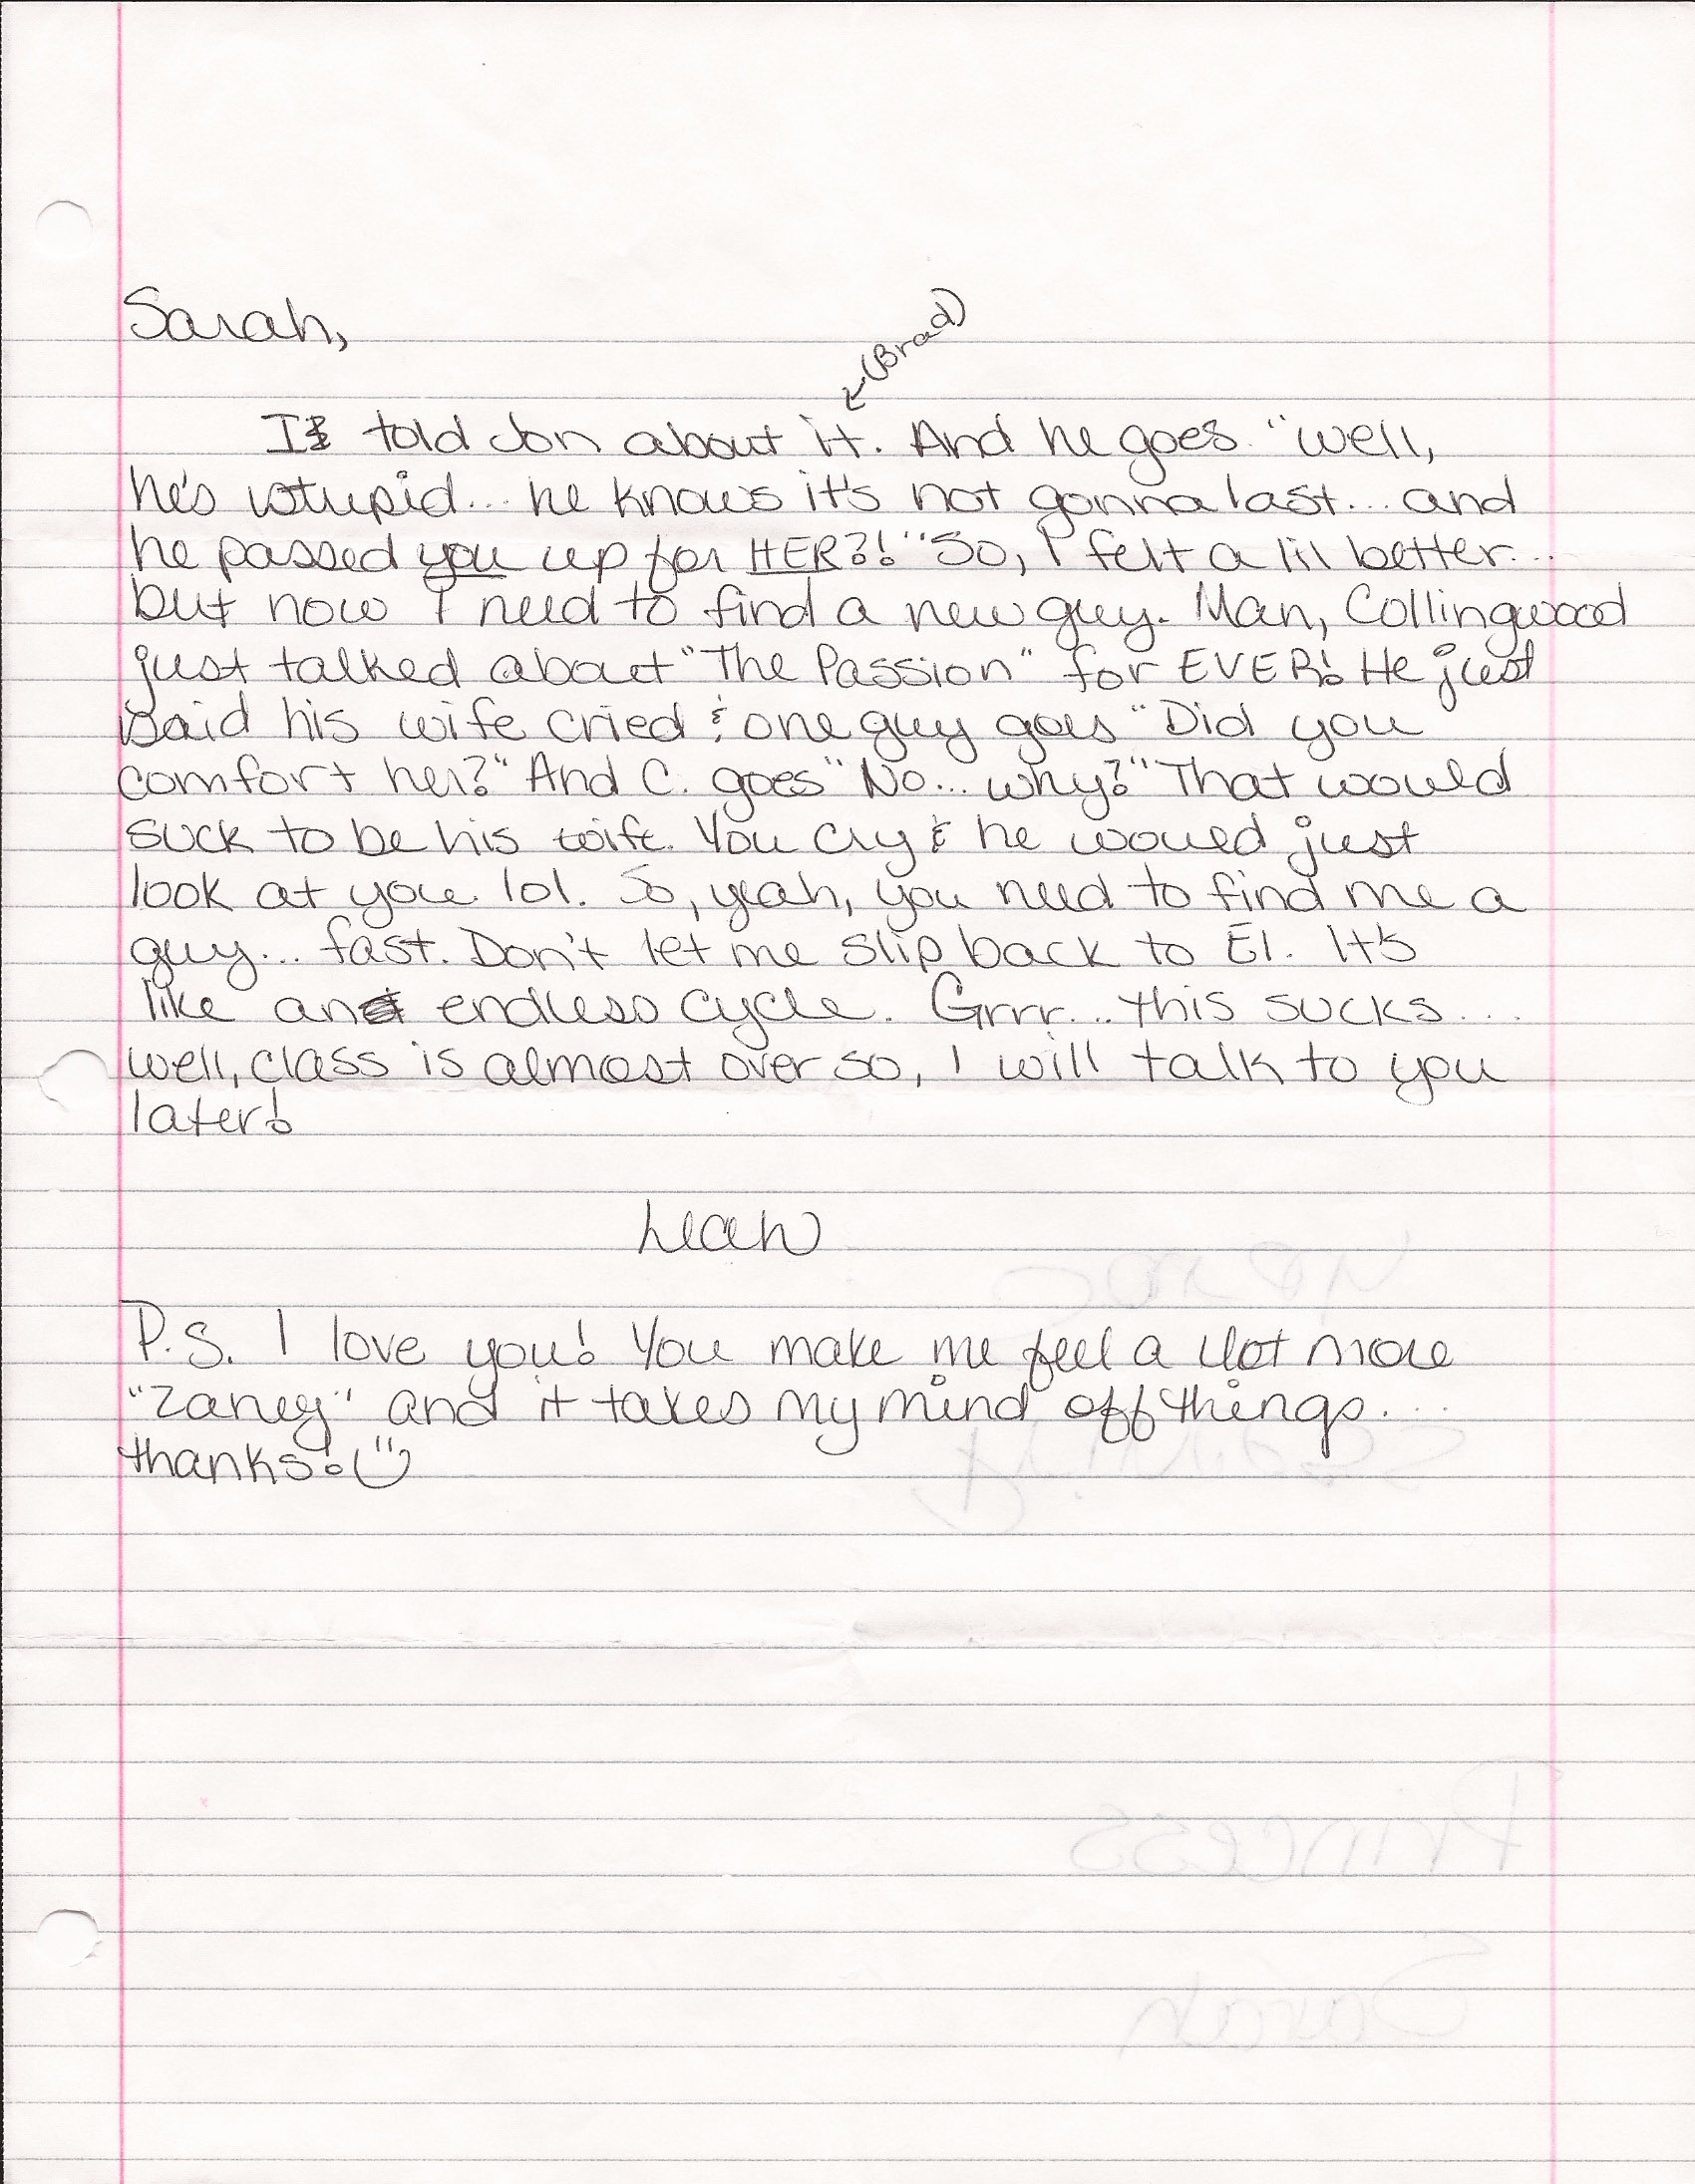 Sarah,
(Brad)
I told Jon about it. And he goes "well,
he's stupid... he knows it's not gonna last... and
he passed you up for HER?!" So, I felt a lil better...
but now I need to find a new guy. Man, Collingwood
just talked about "The Passion" for EVER! He just
said his wife cried & one guy goes "Did you
comfort her?" And C. goes "No... why?" That would
suck to be his wife. You cry & he would just
look at you lol. So, yeah, you need to find me a
guy... fast. Don't let me slip back to El. It's
like an endless cycle. Grrr... this sucks...
well, class is almost over so, I will talk to you
later!
Leah
P.S. I love you! You make me feel a lot more
"zaney" and it takes my mind off things...
thanks! :)
Princess
Sarah